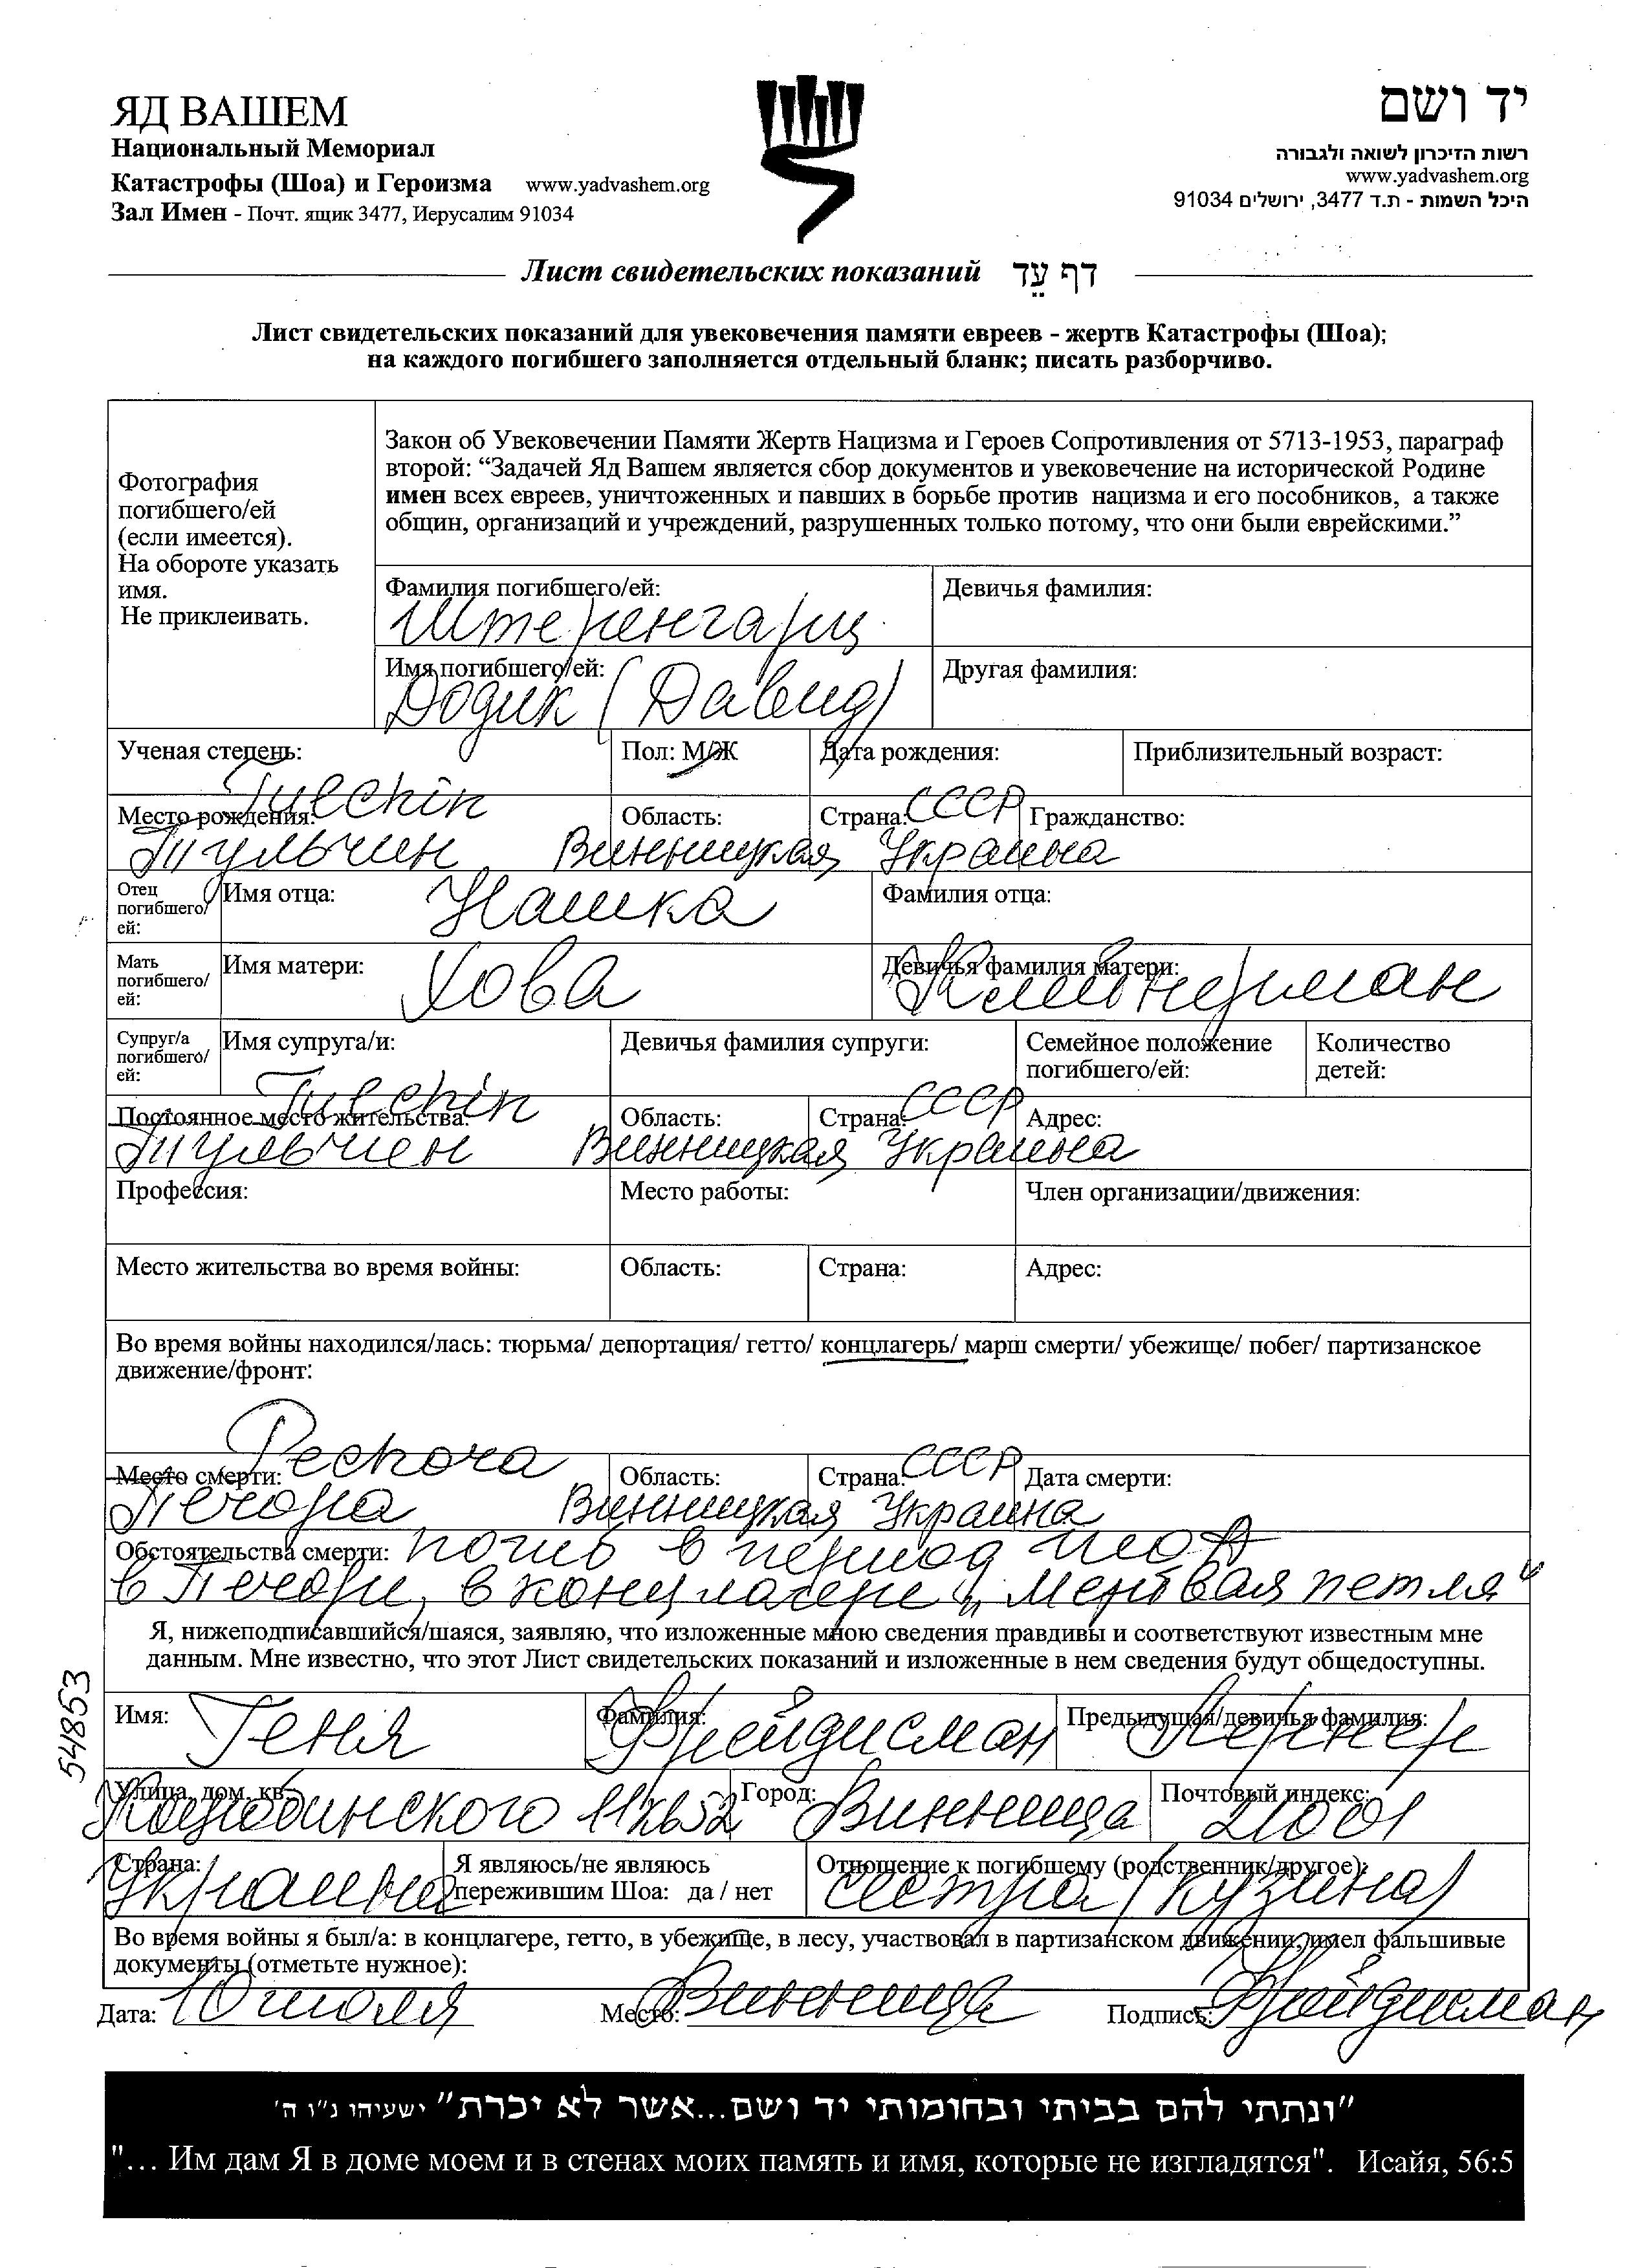 ЯД ВАШЕМ
Национальный Мемориал
Катастрофы (Шоа) и Героизма www.yadvashem.org
Зал Имен - Почт. ящик 3477, Иерусалим 91034
יד ושם
רשות הזיכרון לשואה ולגבורה
www.yadvashem.org
היכל השמות - ת.ד 3477, ירושלים 91034
Лист свидетельских показаний דף עֵד
Лист свидетельских показаний для увековечения памяти евреев - жертв Катастрофы (Шоа);
на каждого погибшего заполняется отдельный бланк; писать разборчиво.
Фотография
погибшего/ей
(если имеется).
На обороте указать
имя.
Не приклеивать.
Закон об Увековечении Памяти Жертв Нацизма и Героев Сопротивления от 5713-1953, параграф
второй: “Задачей Яд Вашем является сбор документов и увековечение на исторической Родине
имен всех евреев, уничтоженных и павших в борьбе против нацизма и его пособников, а также
общин, организаций и учреждений, разрушенных только потому, что они были еврейскими.”
Фамилия погибшего/ей: Девичья фамилия:
Штеренгарц
Имя погибшего/ей: Другая фамилия:
Додик (Давид)
Ученая степень: Пол: М/Ж Дата рождения: Приблизительный возраст:
Tulchin СССР
Место рождения: Область: Страна: Гражданство:
Тульчин Винницкая Украина
Отец погибшего/ей: Имя отца: Нашка Фамилия отца:
Мать погибшего/ей: Имя матери: Хова Девичья фамилия матери: Клейнерман
Супруг/а погибшего/ей: Имя супруга/и: Девичья фамилия супруги: Семейное положение погибшего/ей: Количество детей:
Tulchin СССР
Постоянное место жительства: Область: Страна: Адрес:
Тульчин Винницкая Украина
Профессия: Место работы: Член организации/движения:
Место жительства во время войны: Область: Страна: Адрес:
Во время войны находился/лась: тюрьма/ депортация/ гетто/ концлагерь/ марш смерти/ убежище/ побег/ партизанское
движение/фронт:
Pechora СССР
Место смерти: Область: Страна: Дата смерти:
Печора Винницкая Украина
Обстоятельства смерти: погиб в период шоа
в Печоре, в концлагере „Мертвая петля“
Я, нижеподписавшийся/шаяся, заявляю, что изложенные мною сведения правдивы и соответствуют известным мне
данным. Мне известно, что этот Лист свидетельских показаний и изложенные в нем сведения будут общедоступны.
54853
Имя: Геня Фамилия: Фрейдисман Предыдущая/девичья фамилия: Лернер
Улица, дом, кв.: Коцюбинского 11 кв 52 Город: Винница Почтовый индекс: 21001
Страна: Украина Я являюсь/не являюсь пережившим Шоа: да / нет Отношение к погибшему (родственник/другое): сестра (кузина)
Во время войны я был/а: в концлагере, гетто, в убежище, в лесу, участвовал в партизанском движении, имел фальшивые
документы (отметьте нужное):
Дата: 10 июля Место: Винница Подпись: Фрейдисман
"ונתתי להם בביתי ובחומותי יד ושם...אשר לא יכרת" ישעיהו נ"ו ה'
"... Им дам Я в доме моем и в стенах моих память и имя, которые не изгладятся". Исайя, 56:5